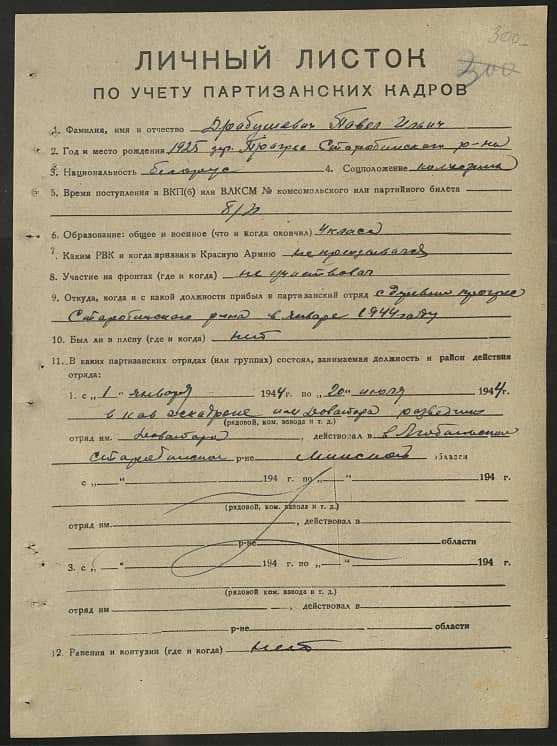 300
300
ЛИЧНЫЙ ЛИСТОК
ПО УЧЕТУ ПАРТИЗАНСКИХ КАДРОВ
1. Фамилия, имя и отчество Драбушевич Павел Ильич
2. Год и место рождения 1925 Старобинского р-на
3. Национальность белорус 4. Соцположение колхозник
5. Время поступления в ВКП(б) или ВЛКСМ № комсомольского или партийного билета
б/п
6. Образование: общее и военное (что и когда окончил) 4 класса
7. Каким РВК и когда призван в Красную Армию не призывался
8. Участие на фронтах (где и когда) не участвовал
9. Откуда, когда и с какой должности прибыл в партизанский отряд с деревни прогрес
Старобинского р-на в январе 1944 году
10. Был ли в плену (где и когда) нет
11. В каких партизанских отрядах (или группах) состоял, занимаемая должность и район действия
отряда:
1. с „1" января 1944 г. по „20" июля 1944 г.
в кав эскадроне им Доватора разведчик
(рядовой, ком. взвода и т. д.)
отряд им. Доватора, действовал в
Старобинском р-не Минской области
с „ " 194 г. по „ " 194 г.
(рядовой, ком. взвода и т. д.)
отряд им. , действовал в
р-не области
3. с „ " 194 г. по „ " 194 г.
(рядовой ком. взвода и т. д.)
отряд им , действовал в
р-не области
12. Ранения и контузии (где и когда) нет